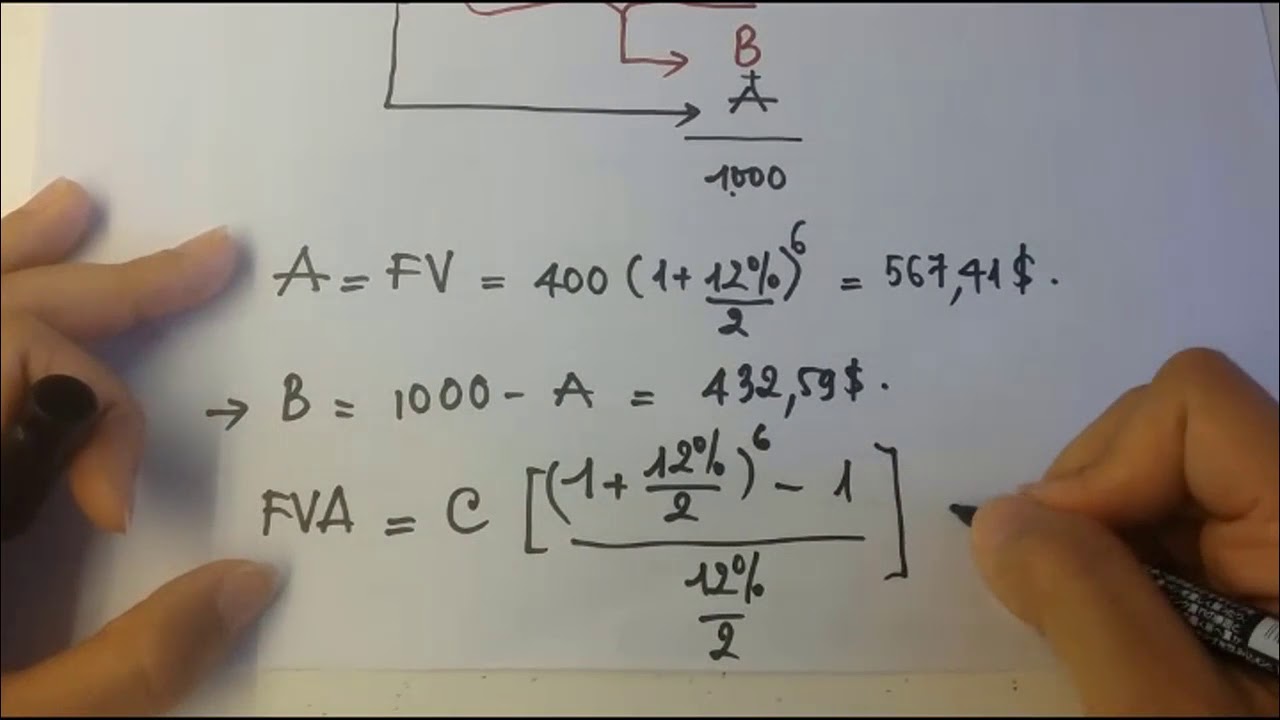 B
+
A
1000
A = FV = 400 (1 + 12%/2)^6 = 567,41$.
→ B = 1000 - A = 432,59$.
FVA = C [((1 + 12%/2)^6 - 1) / (12%/2)]